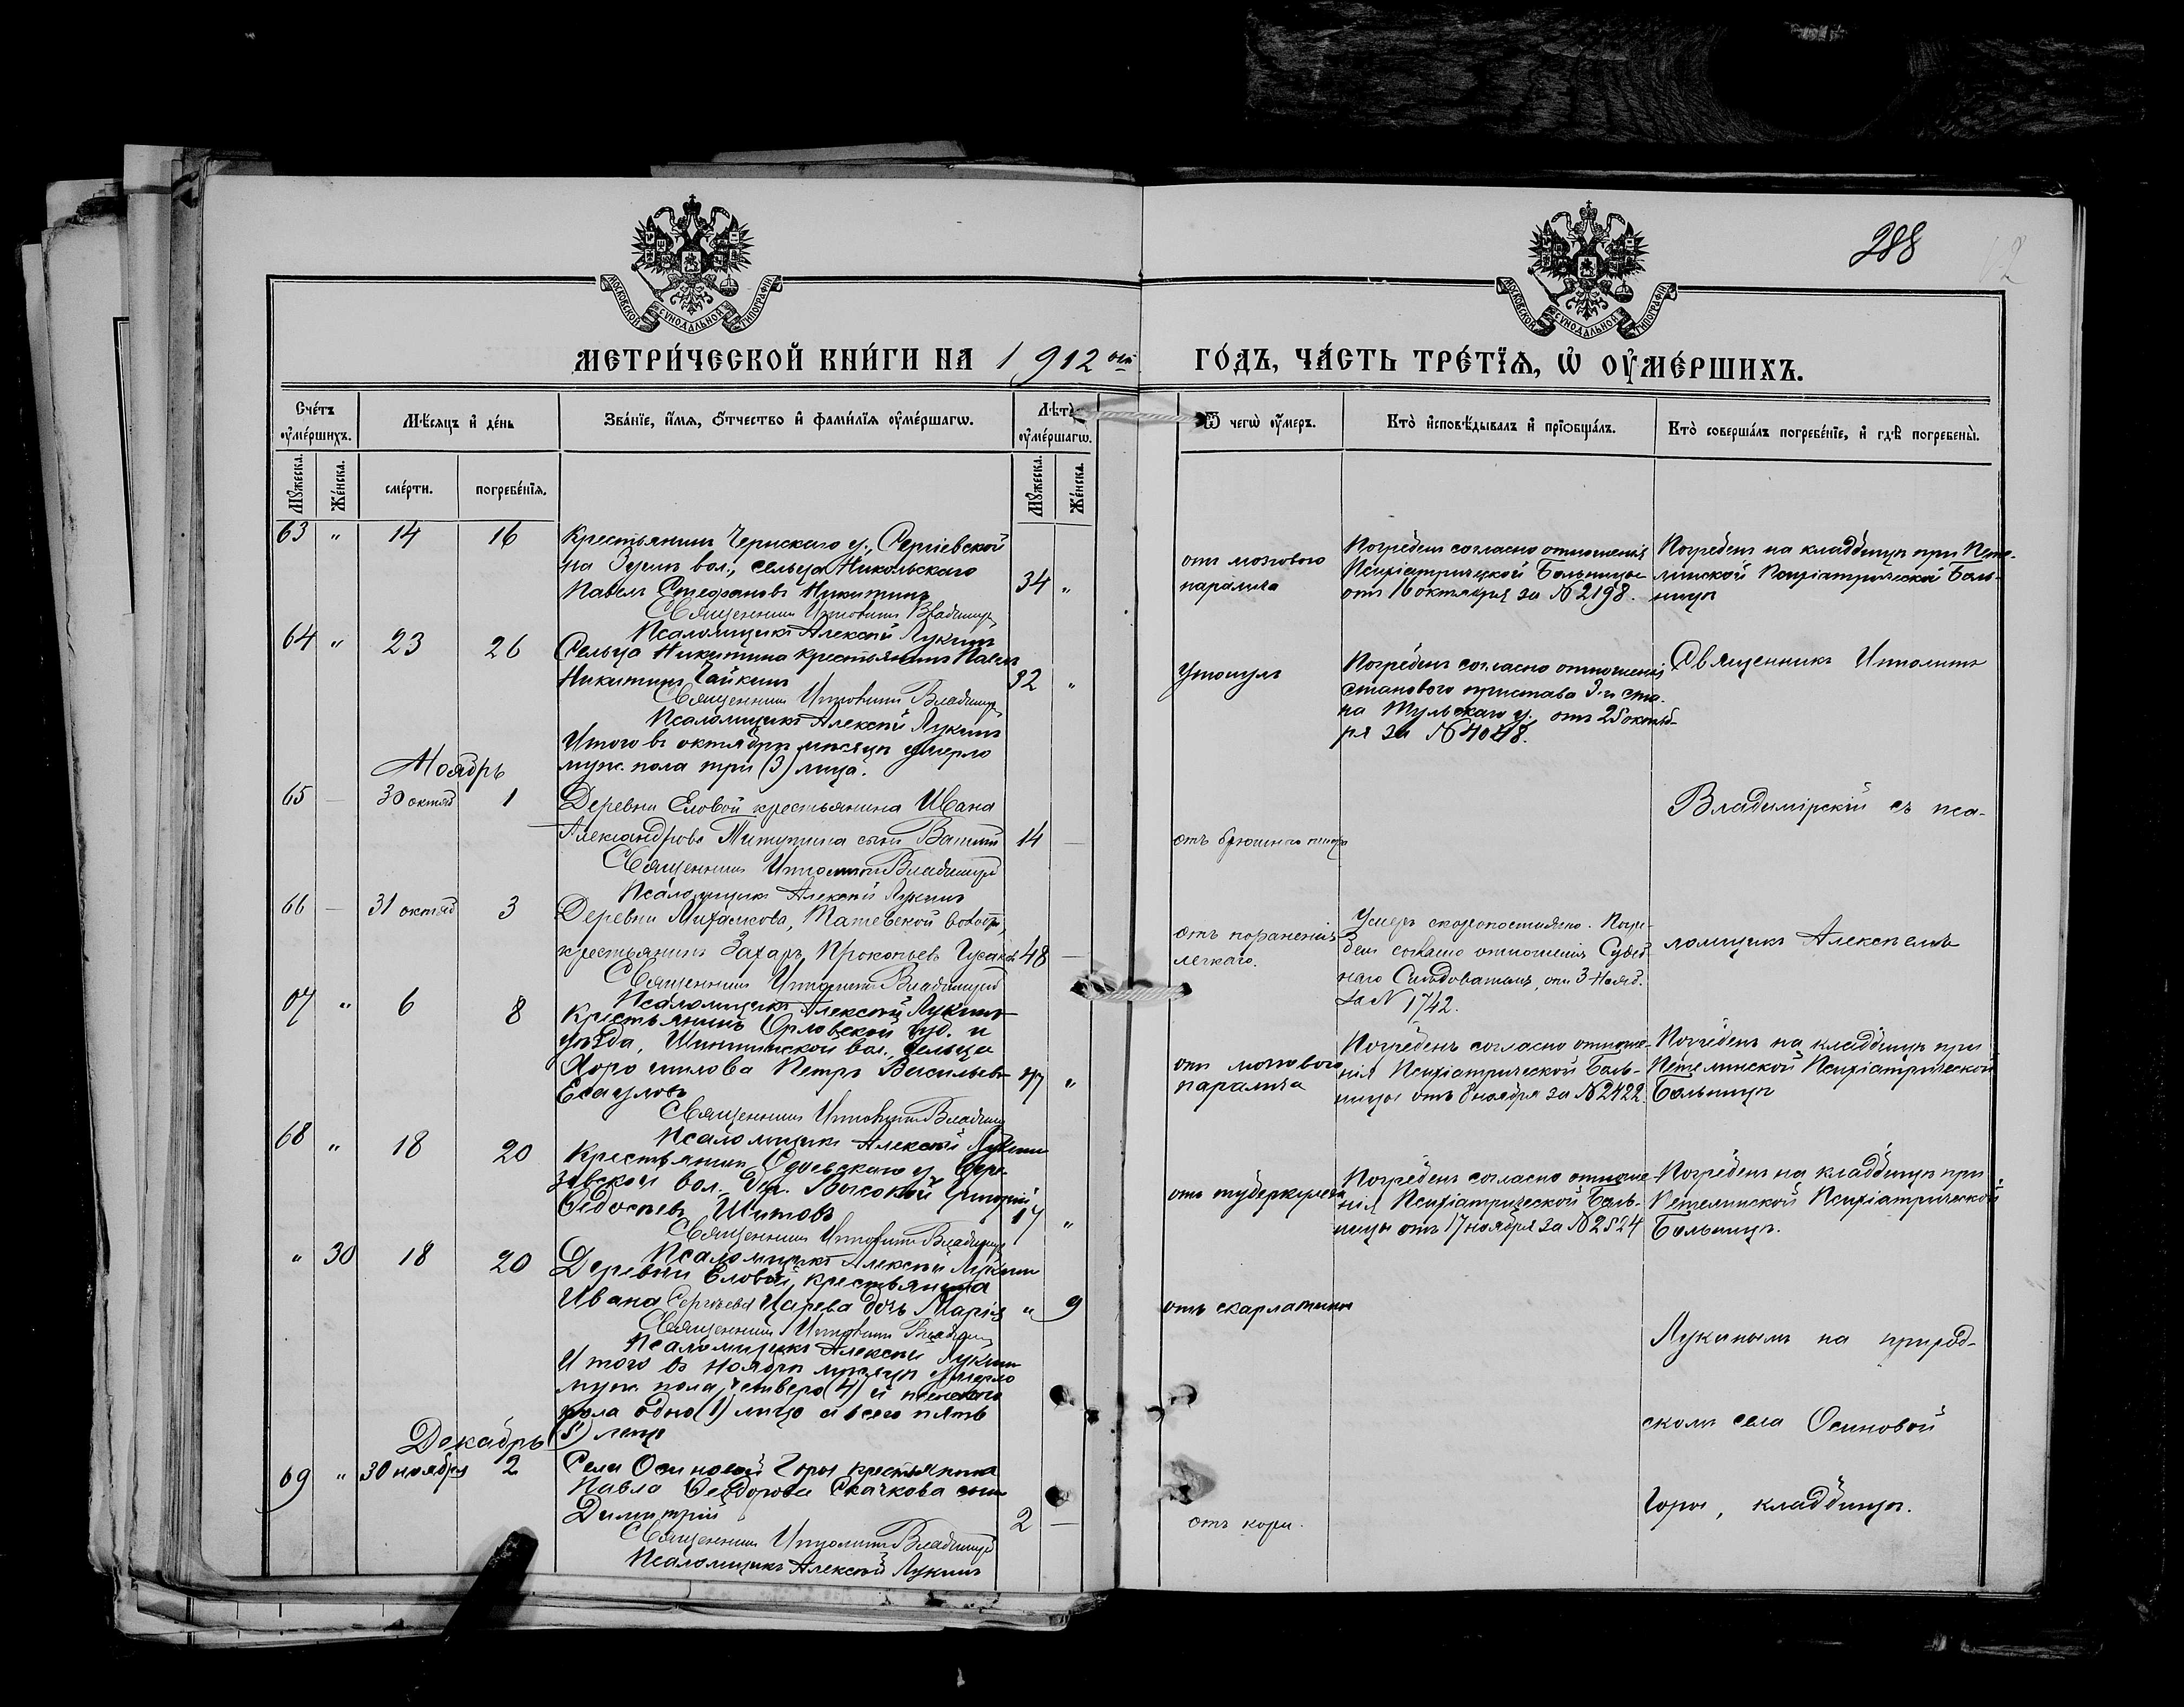 288
МОСКОВСКОЙ СѴНОДАЛЬНОЙ ТИПОГРАФІИ
МОСКОВСКОЙ СѴНОДАЛЬНОЙ ТИПОГРАФІИ
МЕТРИ́ЧЕСКОЙ КНИ́ГИ НА 1912 ый ГО́ДЪ, ЧА́СТЬ ТРЕ́ТЇѦ, Ѡ҆ ОУ҆МЕ́РШИХЪ.
Сче́тъ оу҆ме́ршихъ.
Мѣ́сѧцъ и҆ де́нь
Зва́нїе, и҆́мѧ, ѻ҆́тчество и҆ фами́лїѧ оу҆ме́ршагѡ.
Лѣ́та оу҆ме́ршагѡ.
Ѿ чегѡ̀ оу҆́меръ.
Кто̀ и҆сповѣ́дывалъ и҆ прїѡбща́лъ.
Кто̀ соверша́лъ погребе́нїе, и҆ гдѣ̀ погребены̀.
Мꙋ́жеска.
Же́нска.
сме́рти.
погребе́нїѧ.
Мꙋ́жеска.
Же́нска.
63 " 14 16
Крестьянинъ Чернскаго у., Сергіевской
на Зушѣ вол., сельца Никольскаго
Павелъ Стефановъ Никитинъ 34 "
Священникъ Ипполитъ Владимір
Псаломщикъ Алексѣй Лукинъ
отъ мозгового
паралича
Погребенъ согласно отношенія
Психіатрической Больницы
отъ 16 октября за № 2198.
Погребенъ на кладбищѣ при Пете-
линской Психіатрической Боль-
ницѣ
64 " 23 26
Сельца Никитина крестьянинъ Павелъ
Никитинъ Чайкинъ 32 "
Священникъ Ипполитъ Владимір
Псаломщикъ Алексѣй Лукинъ
Утонулъ
Погребенъ согласно отношенія
станового пристава 3-го ста-
на Тульскаго у. отъ 25 октяб-
ря за № 4048.
Священникъ Ипполитъ
Итого въ октябрѣ мѣсяцѣ умерло
муж. пола три (3) лица.
Ноябрь
65 — 30 октяб 1
Деревни Еловой крестьянина Ивана
Александрова сынъ 14 —
Священникъ Ипполитъ Владимір
Псаломщикъ Алексѣй Лукинъ
отъ брюшного тифа
Владимірскій съ пса-
66 — 31 октяб 3
Деревни
крестьянинъ Захаръ Прокопьевъ 48 —
Священникъ Ипполитъ Владимір
Псаломщикъ Алексѣй Лукинъ
отъ пораженія
легкаго.
Умеръ скоропостижно. Погре-
бенъ согласно отношенія Судеб-
наго Слѣдователя, отъ 3 Нояб.
за № 1742.
ломщикъ Алексѣемъ
67 " 6 8
Крестьянинъ Орловской губ. и
уѣзда, вол., сельца
Хорошилова Петръ Васильевъ 47 "
Есауловъ
Священникъ Ипполитъ Владимір
Псаломщикъ Алексѣй Лукинъ
отъ мозгового
паралича
Погребенъ согласно отноше-
нія Психіатрической Боль-
ницы отъ 8 ноября за № 2422
Погребенъ на кладбищѣ при
Петелинской Психіатрической
Больницѣ
68 " 18 20
Крестьянинъ Одоевскаго у.
вол. дер. Высокой Григорій
Федосѣевъ Шитовъ 17 "
Священникъ Ипполитъ Владимір
Псаломщикъ Алексѣй Лукинъ
отъ туберкулеза
Погребенъ согласно отноше-
нія Психіатрической Боль-
ницы отъ 17 ноября за № 2524
Погребенъ на кладбищѣ при
Петелинской Психіатрической
Больницѣ.
" 30 18 20
Деревни Еловой, крестьянина
Ивана Сергѣева Царева дочь Марія " 9
Священникъ Ипполитъ Владимір
Псаломщикъ Алексѣй Лукинъ
отъ скарлатины
Лукинымъ на приход-
Итого въ ноябрѣ мѣсяцѣ умерло
муж. пола четверо (4) и женскаго
пола одно (1) лицо а всего пять
(5) лицъ
скомъ села Осиновой
Декабрь
69 " 30 ноября 2
Села Осиновой Горы крестьянина
Павла Ѳеодорова Скачкова сынъ
Димитрій 2 —
Священникъ Ипполитъ Владимір
Псаломщикъ Алексѣй Лукинъ
отъ кори.
Горы, кладбищѣ.